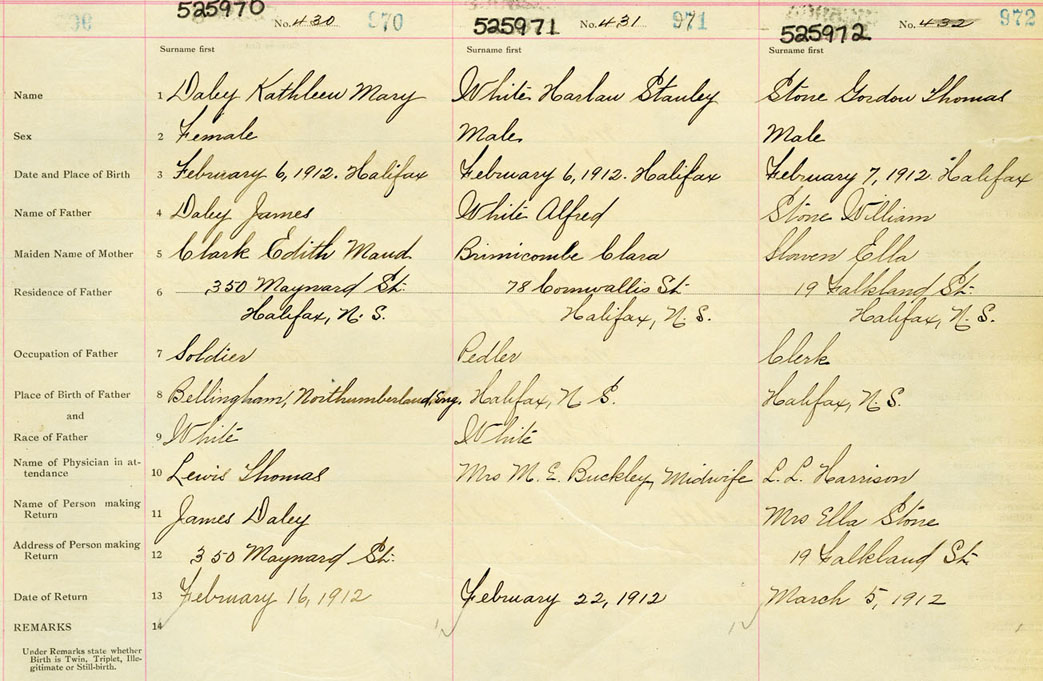 525970 No. 430 970 525971 No. 431 971 525972 No. 432 972
Surname first Surname first Surname first
Name 1 Daley Kathleen Mary White Harlan Stanley Stone Gordon Thomas
Sex 2 Female Male Male
Date and Place of Birth 3 February 6, 1912. Halifax February 6, 1912. Halifax February 7, 1912. Halifax
Name of Father 4 Daley James White Alfred Stone William
Maiden Name of Mother 5 Clark Edith Maud Brimicombe Clara Ella
Residence of Father 6 350 Maynard St. 78 Cornwallis St. 19 Falkland St.
Halifax, N. S. Halifax, N. S. Halifax, N. S.
Occupation of Father 7 Soldier Pedler Clerk
Place of Birth of Father 8 Bellingham, Northumberland, Eng. Halifax, N. S. Halifax, N. S.
and
Race of Father 9 White White
Name of Physician in at-
tendance 10 Lewis Thomas Mrs M. E. Buckley, Midwife L. L. Harrison
Name of Person making
Return 11 James Daley Mrs Ella Stone
Address of Person making
Return 12 350 Maynard St. 19 Falkland St.
Date of Return 13 February 16, 1912 February 22, 1912 March 5, 1912
REMARKS 14
Under Remarks state whether
Birth is Twin, Triplet, Ille-
gitimate or Still-birth.